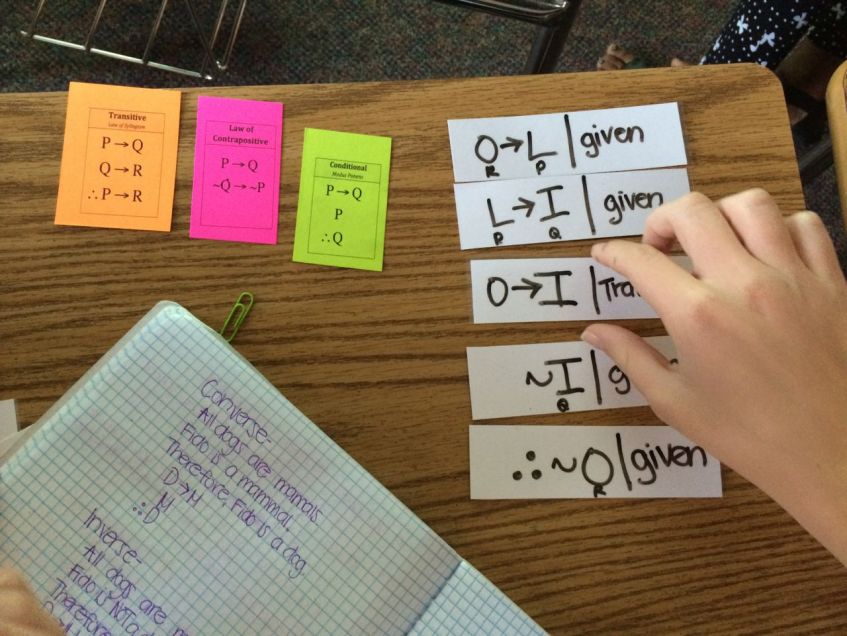 Transitive
Law of Syllogism
P→Q
Q→R
∴P→R
Law of
Contrapositive
P→Q
~Q→~P
Conditional
Modus Ponens
P→Q
P
∴Q
O→L | given
R P
L→I | given
P Q
O→I | Tra
~I | g
Q
∴~O | given
R
Converse-
All dogs are mamals
Fido is a mammal.
Therefore, Fido is a dog.
D→M
M
∴D
Inverse-
All dogs are
Fido is NOT a
Therefore